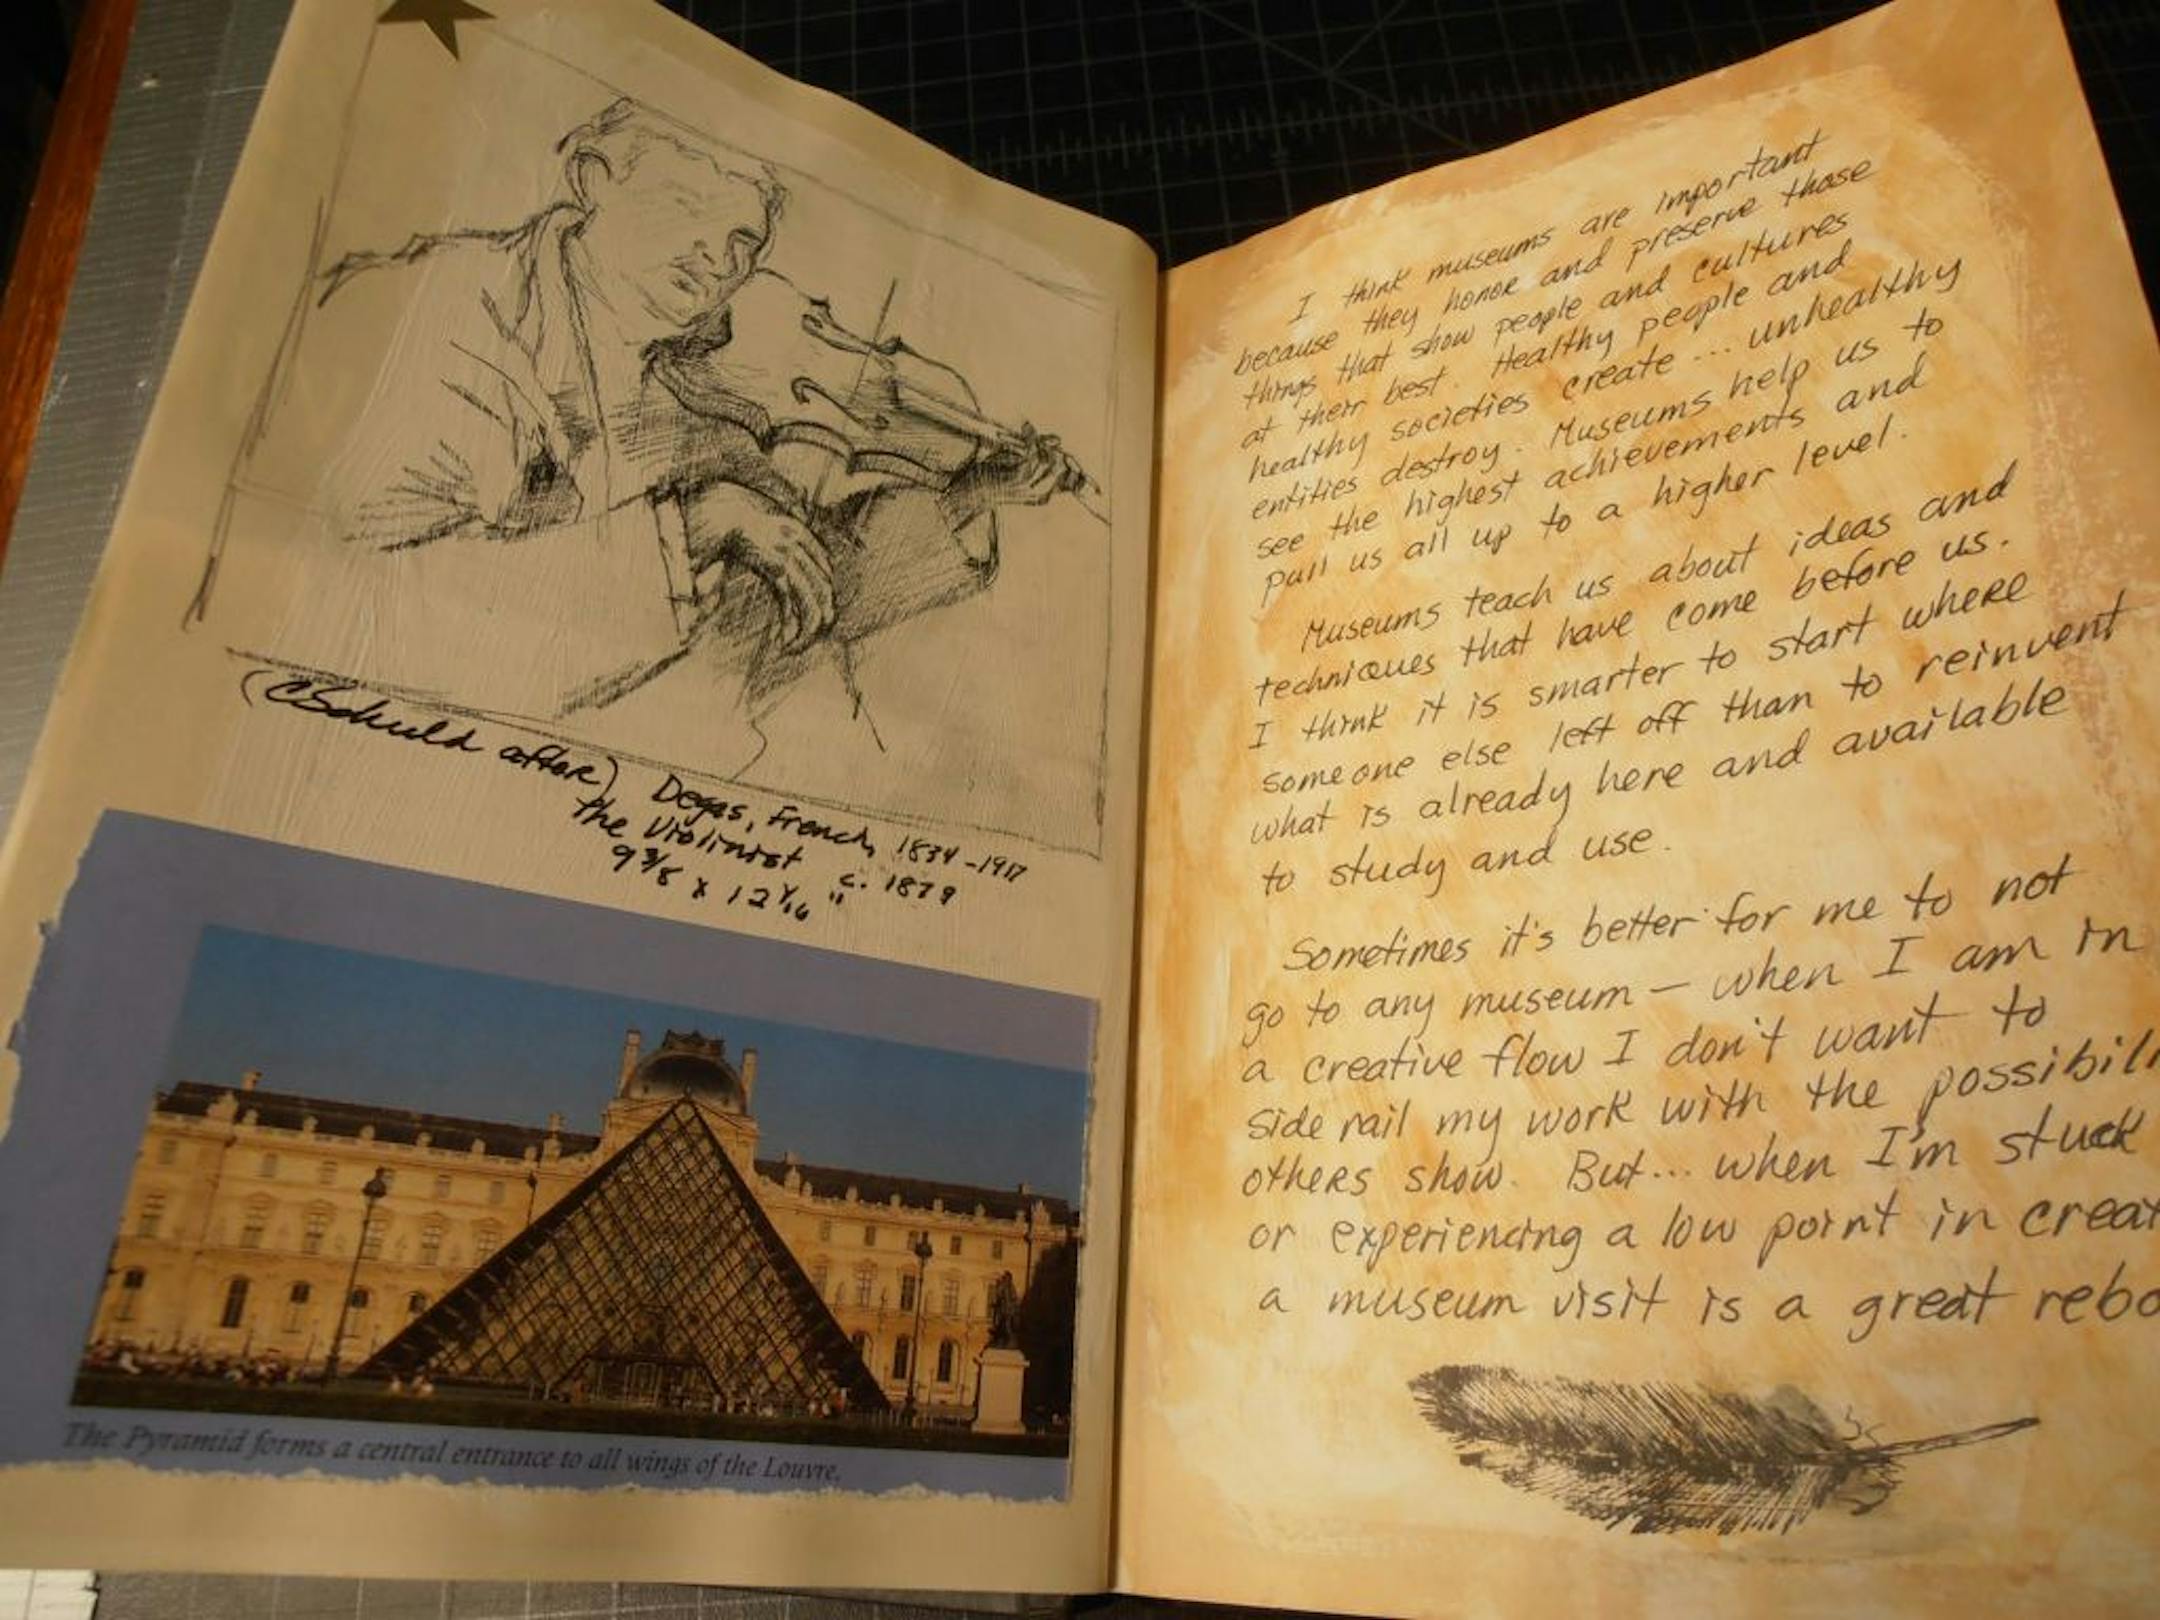 (CSchuld after) Degas, French, 1834-1917
The Violinist c. 1879
9 3/8 x 12 1/16"
The Pyramid forms a central entrance to all wings of the Louvre.
I think museums are important
because they honor and preserve those
things that show people and cultures
at their best. Healthy people and
healthy societies create ... unhealthy
entities destroy. Museums help us to
see the highest achievements and
pull us all up to a higher level.
Museums teach us about ideas and
techniques that have come before us.
I think it is smarter to start where
someone else left off than to reinvent
what is already here and available
to study and use.
Sometimes it's better for me to not
go to any museum — when I am in
a creative flow I don't want to
side rail my work with the possibili
others show. But... when I'm stuck
or experiencing a low point in creat
a museum visit is a great rebo